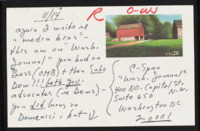 11/14
R
again I waited
"media bias" -
this am on "Wash.
Journal" you had on
Bass (OMB) then
Dem!!! both give
advocates (ie Dems) -
you did bias on
Domenici; but
USA 20
C-Span
"Wash. Journal"
400 No. Capitol St.
Suite 650 N.W.
Washington DC
20001